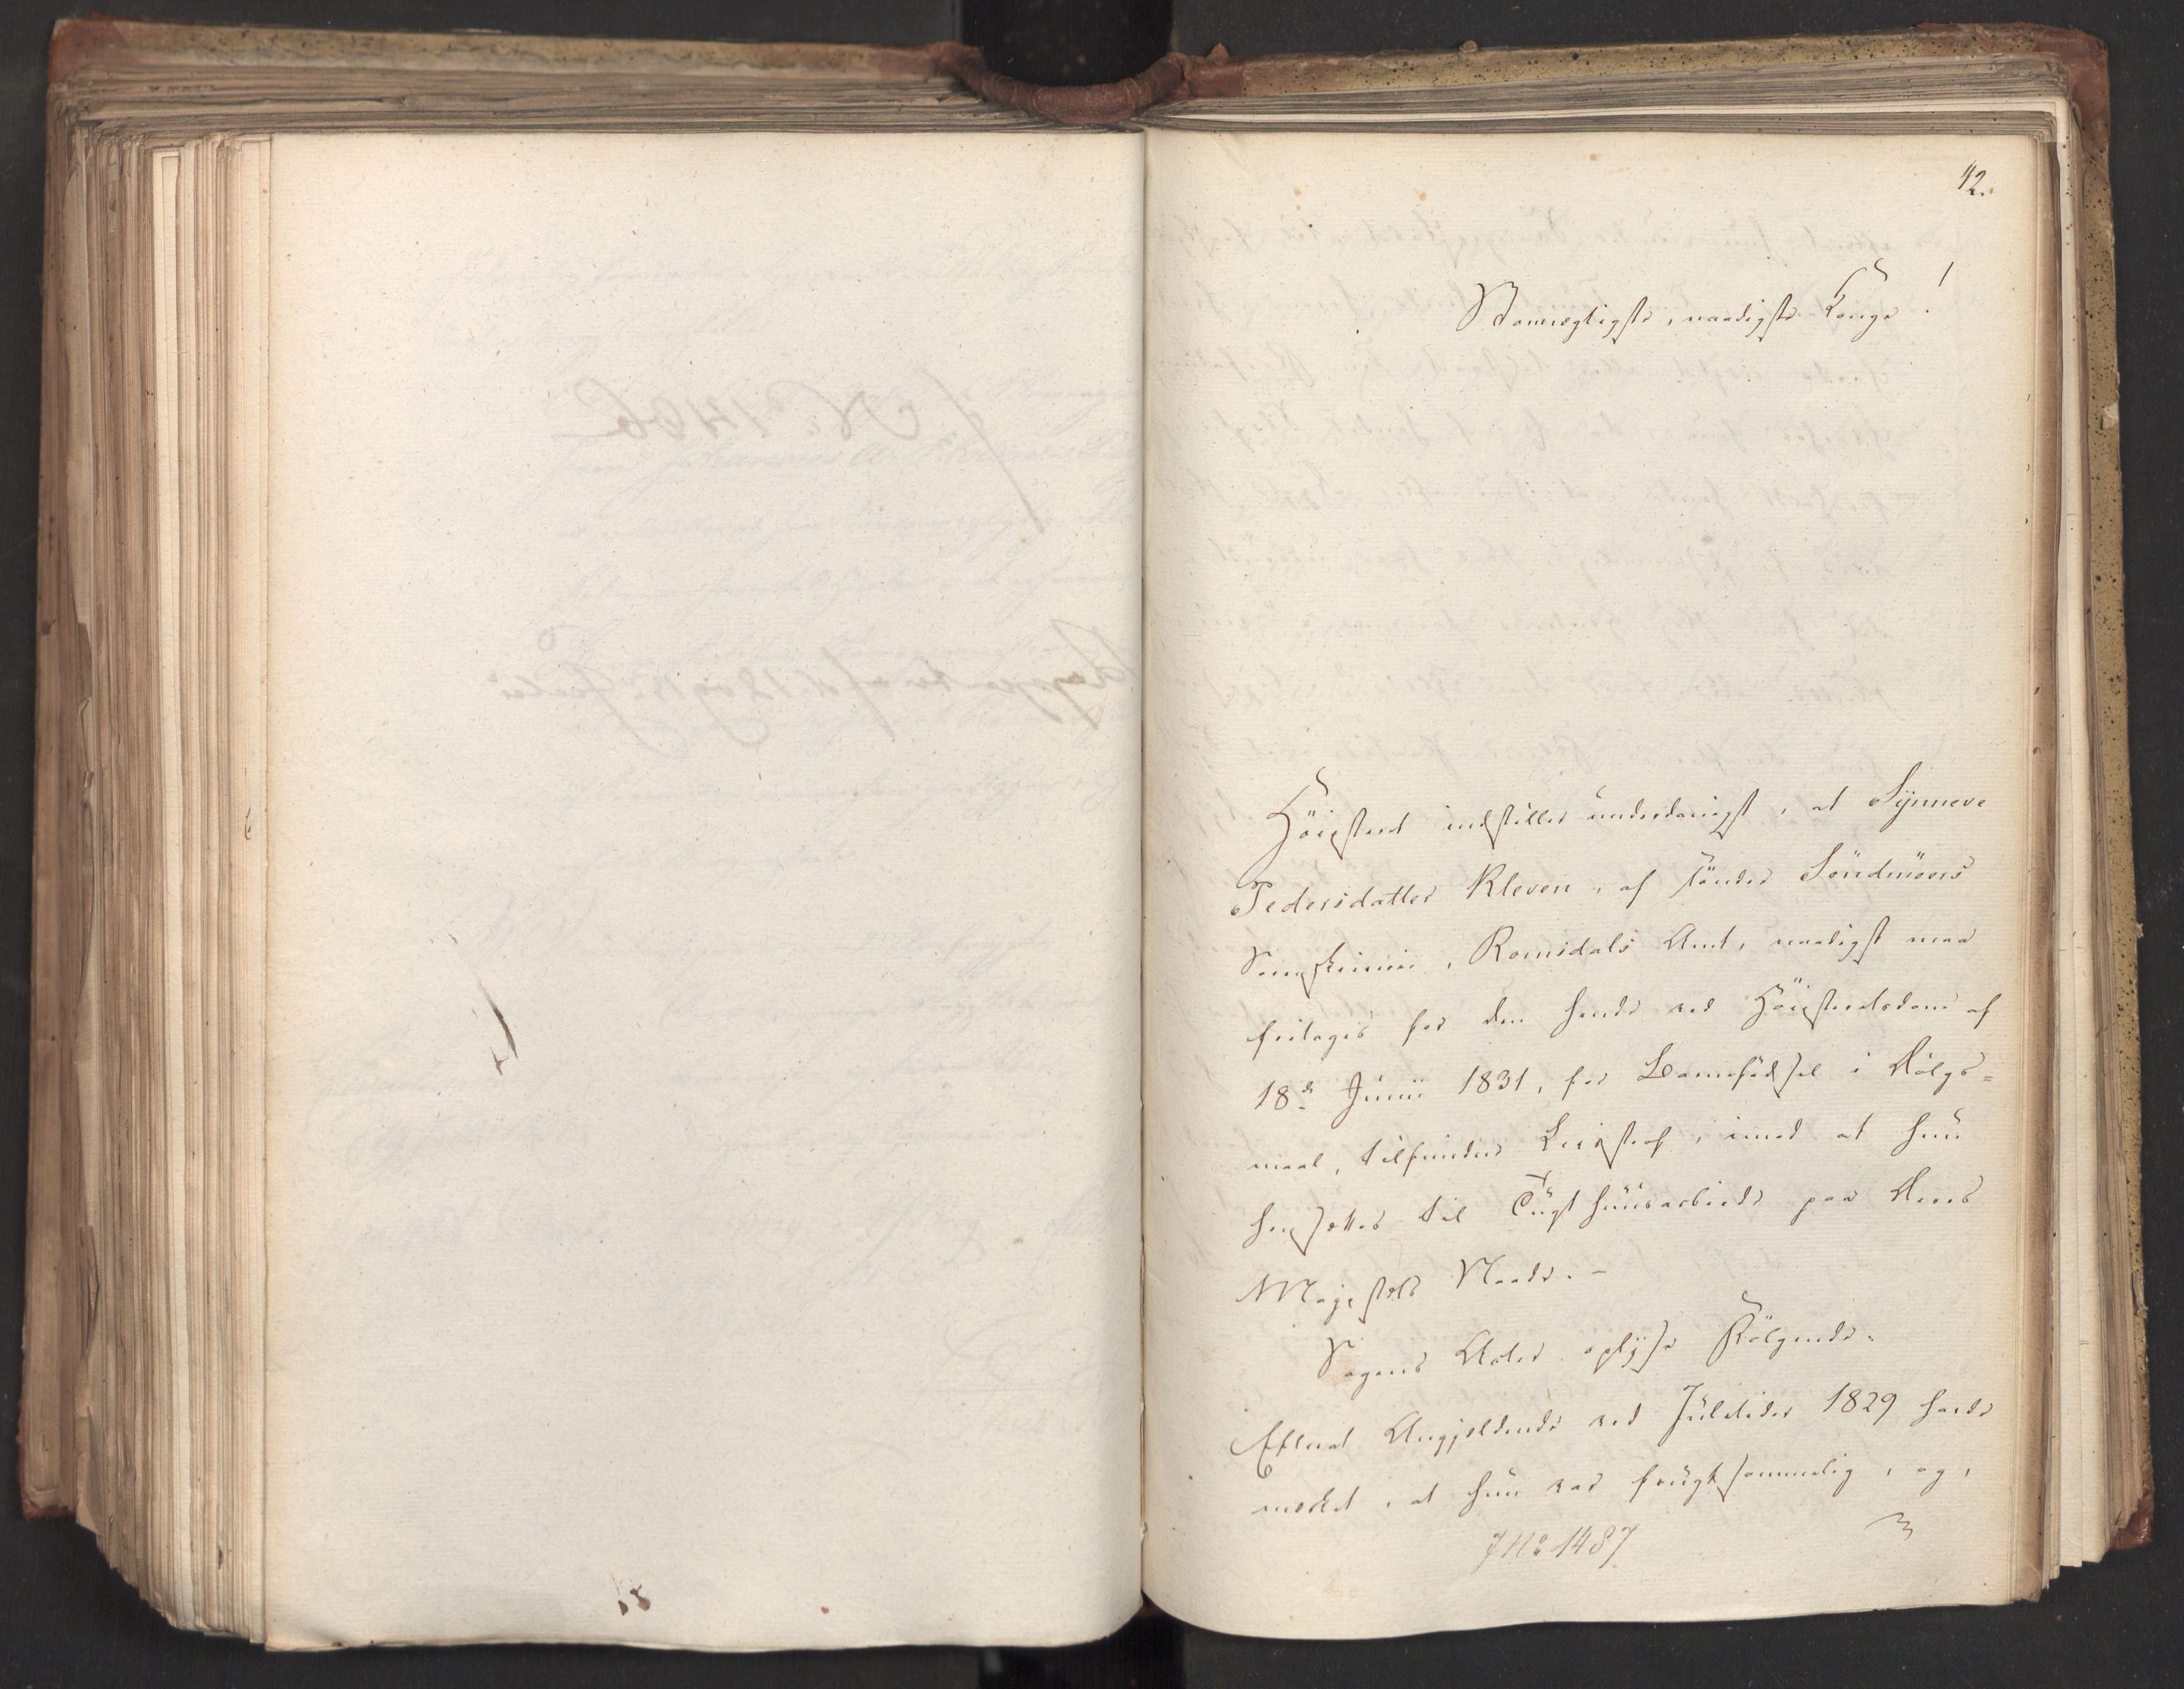 42.
Stormægtigste, naadigste Konge!
Höiesteret indstiller underdanigst, at Synneve
Pedersdatter Kleven, af söndre Söndmöers
Sorenskriverie, Romsdals Amt, naadigst maa
fritages for den hende ved Höiesteretsdom af
18de Junii 1831, for Barnefödsel i Dölgs=
maal, tilfundne Livsstraf, imod at hun
hensættes til Tugthuusarbeide paa Deres
Majestæts Naade. –
Sagens Acter oplyse Fölgende:
Efterat Angjeldende ved Juletider 1829 havde
mærket, at hun var frugtsommelig, og,
J No 1487